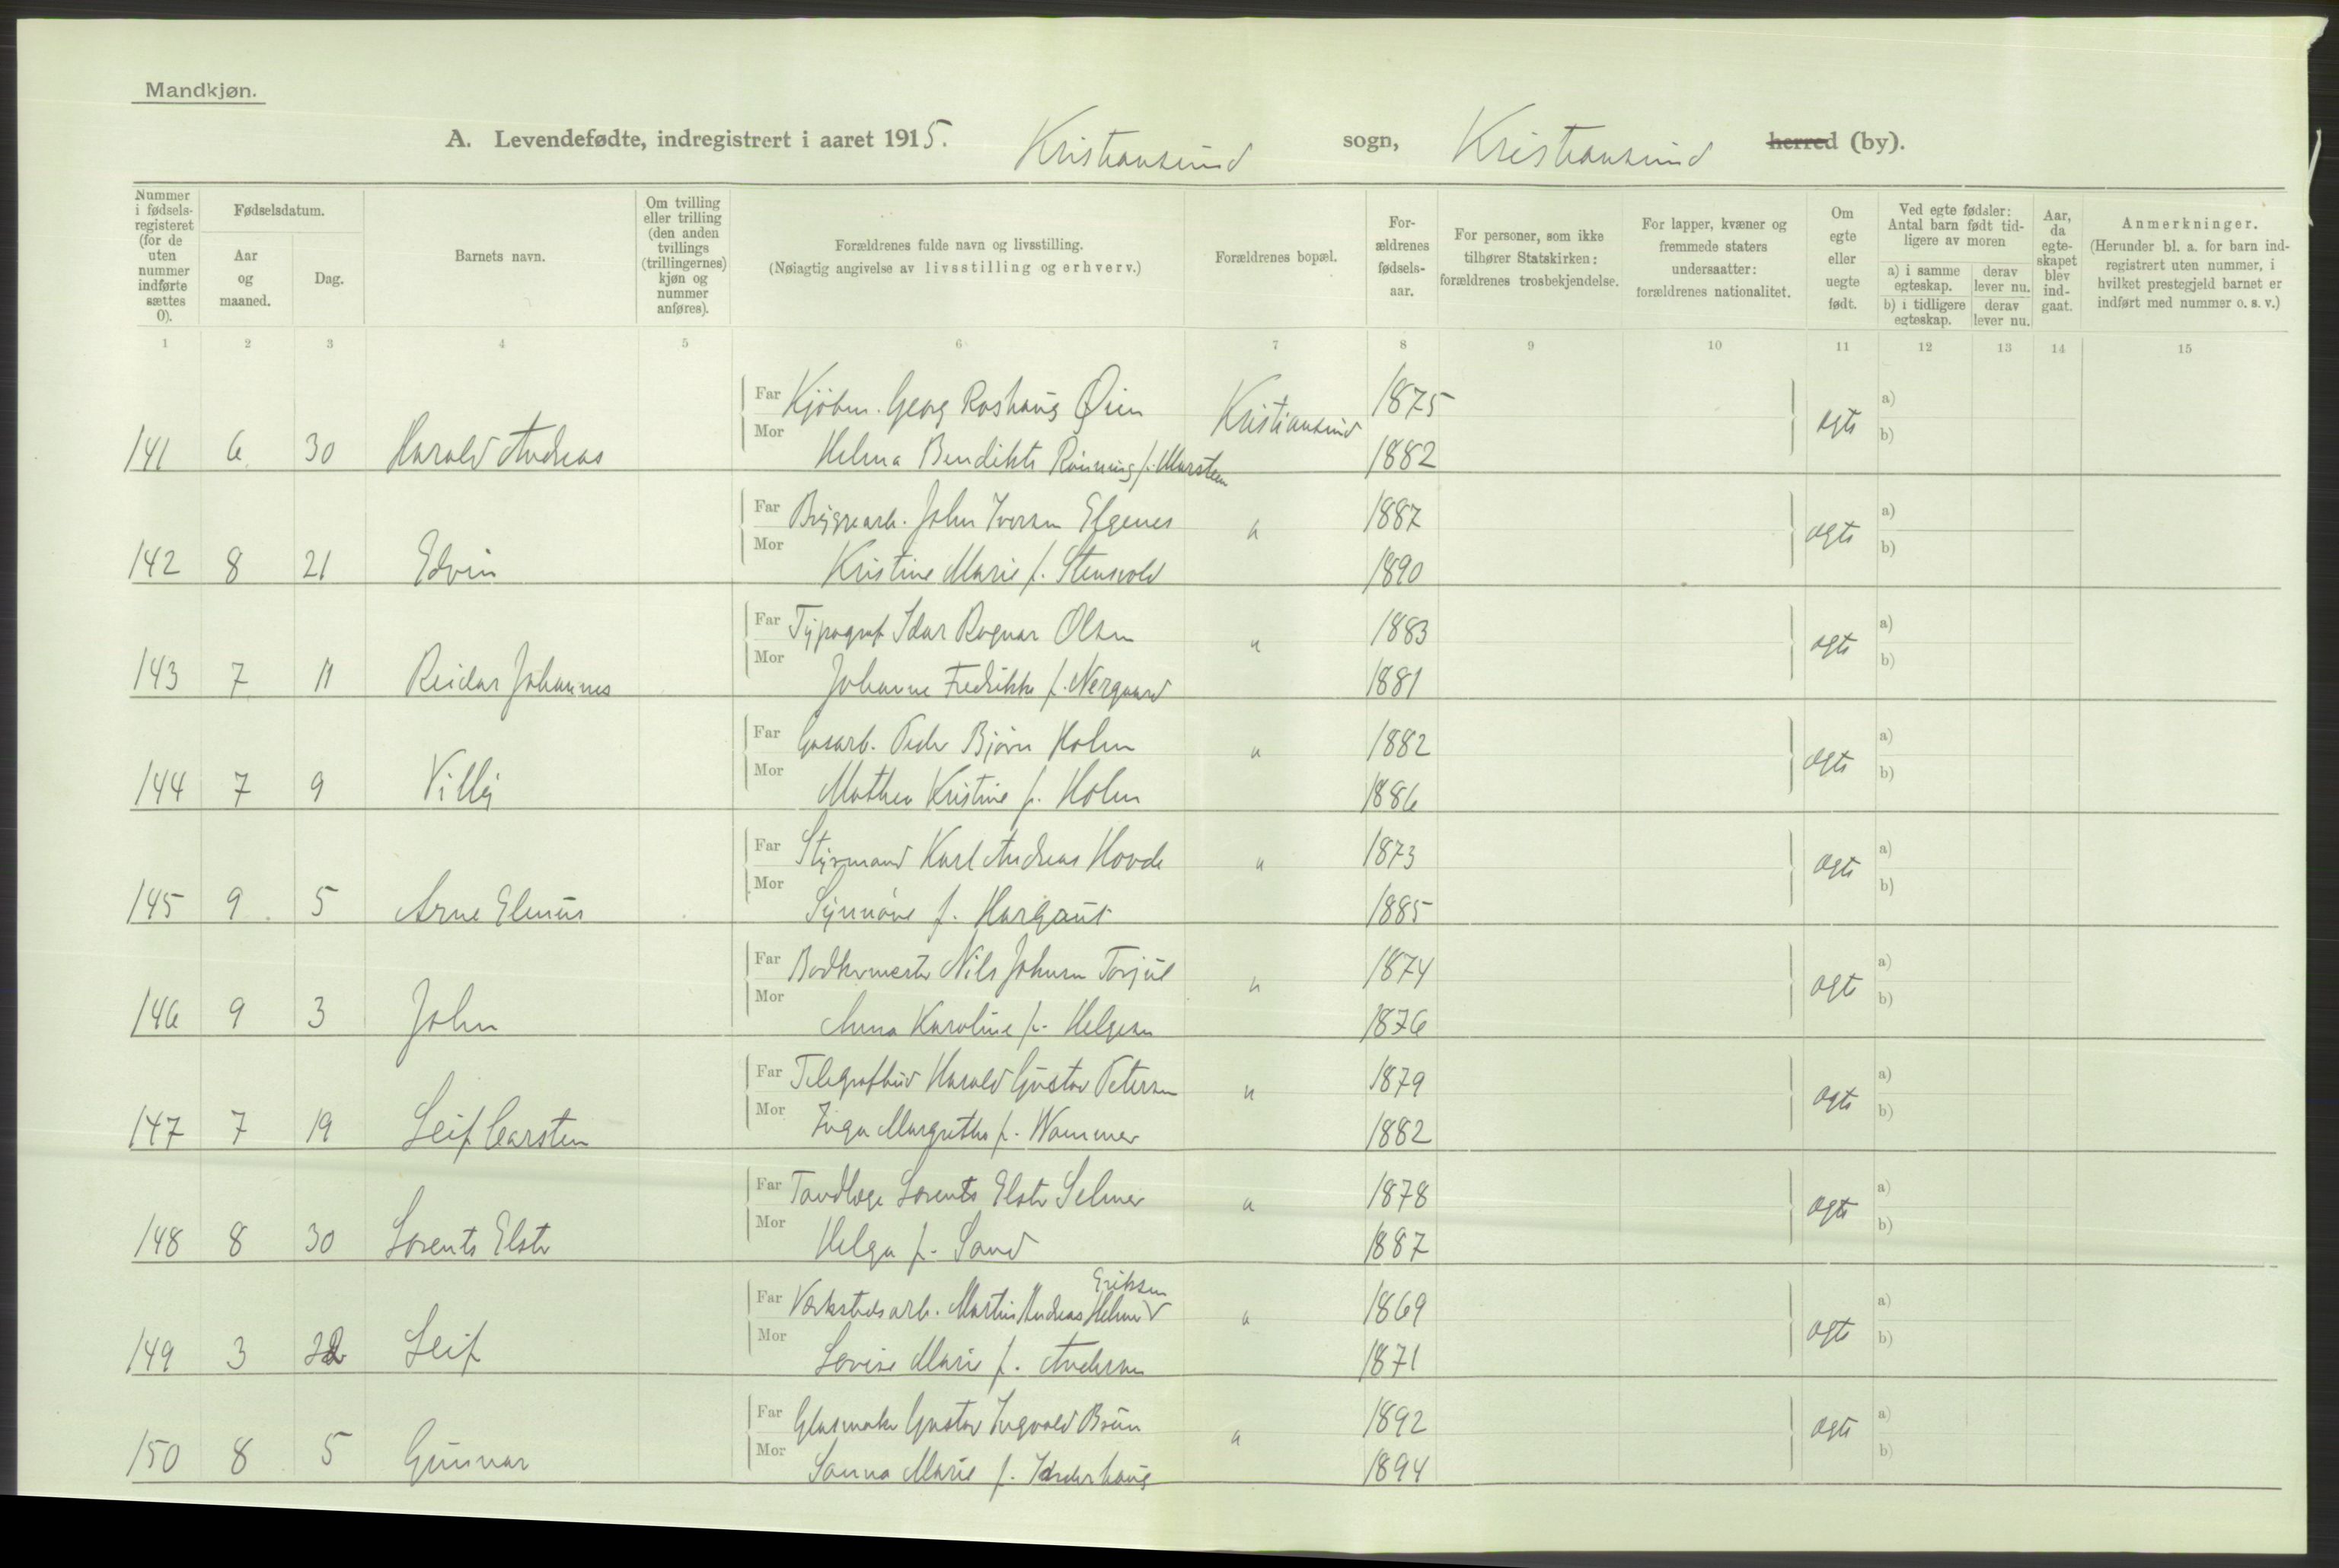 Mandkjøn.
A. Levendefødte, indregistrert i aaret 1915. Kristiansund sogn, Kristiansund herred (by).
Nummer i fødsels-registeret (for de uten nummer indførte sættes 0).
Fødselsdatum.
Aar og maaned.
Dag.
Barnets navn.
Om tvilling eller trilling (den anden tvillings (trillingernes) kjøn og nummer anføres).
Forældrenes fulde navn og livsstilling.
(Nøiagtig angivelse av livsstilling og erhverv.)
Forældrenes bopæl.
For-ældrenes fødsels-aar.
For personer, som ikke tilhører Statskirken: forældrenes trosbekjendelse.
For lapper, kvæner og fremmede staters undersaatter: forældrenes nationalitet.
Om egte eller uegte født.
Ved egte fødsler: Antal barn født tid-ligere av moren
a) i samme egteskap.
derav lever nu.
b) i tidligere egteskap.
derav lever nu.
Aar, da egte-skapet blev ind-gaat.
Anmerkninger.
(Herunder bl. a. for barn ind-registrert uten nummer, i hvilket prestegjeld barnet er indført med nummer o. s. v.)
1 2 3 4 5 6 7 8 9 10 11 12 13 14 15
Far Kjøbm. Georg Roshaug Øien Kristiansund 1875 egte a)
141 6 30 Harald Andreas Mor Helma Bendikte Rønning f. Marsteen 1882 b)
Far Bryggearb. John Iversen Elgenes " 1887 egte a)
142 8 21 Edvin Mor Kristine Marie f. Stensvold 1890 b)
Far Typograf Idar Ragnar Olsen " 1883 egte a)
143 7 11 Reidar Johannes Mor Johanne Fredrikke f. Nergaard 1881 b)
Far Gasarb. Peder Bjørn Holm " 1882 egte a)
144 7 9 Villy Mor Mathea Kristine f. Holm 1886 b)
Far Styrmand Karl Andreas Hovde " 1873 egte a)
145 9 5 Arne Elenus Mor Synnøve f. Hargaut 1885 b)
Far Bødkermester Nils Johnsen Torjul " 1874 egte a)
146 9 3 John Mor Anna Karoline f. Helgesen 1876 b)
Far Telegrafbud Harald Gustav Petersen " 1879 egte a)
147 7 19 Leif Carsten Mor Inga Margrethe f. Wammer 1882 b)
Far Tandlæge Lorents Elster Selmer " 1878 egte a)
148 8 30 Lorents Elster Mor Helga f. Sand 1887 b)
Eriksen
Far Verkstedsarb. Martin Andreas Helmer " 1869 egte a)
149 3 Leif Mor Lovise Marie f. Andersen 1871 b)
Far Glasmaker Gustav Ingvald Bruun " 1892 egte a)
150 8 5 Gunnar Mor Sanna Marie f. Inderhaug 1894 b)